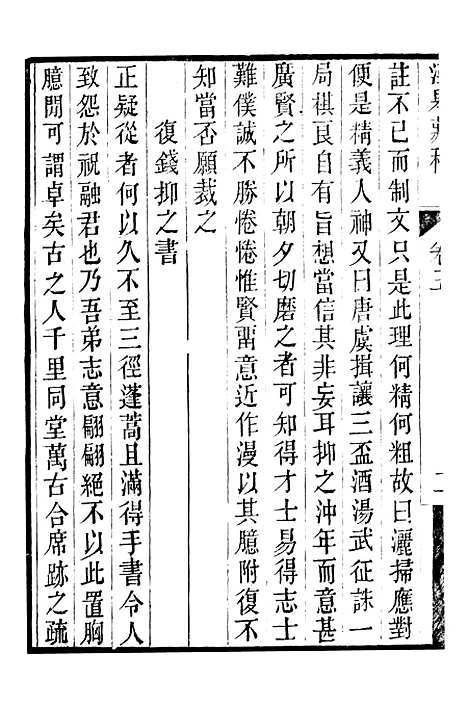 卷五
二
註不已而制文只是此理何精何粗故曰灑掃應對
便是精義入神又曰唐虞揖讓三盃酒湯武征誅一
局棋良自有旨想當信其非妄耳抑之沖年而意甚
廣賢之所以朝夕切磨之者可知得才士易得志士
難僕誠不勝惓惓惟賢畱意近作漫以其臆附復不
知當否願裁之
復錢抑之書
正疑從者何以久不至三徑蓬蒿且滿得手書令人
致怨於祝融君也乃吾弟志意翩翩絕不以此置胸
臆閒可謂卓矣古之人千里同堂萬古合席跡之疏